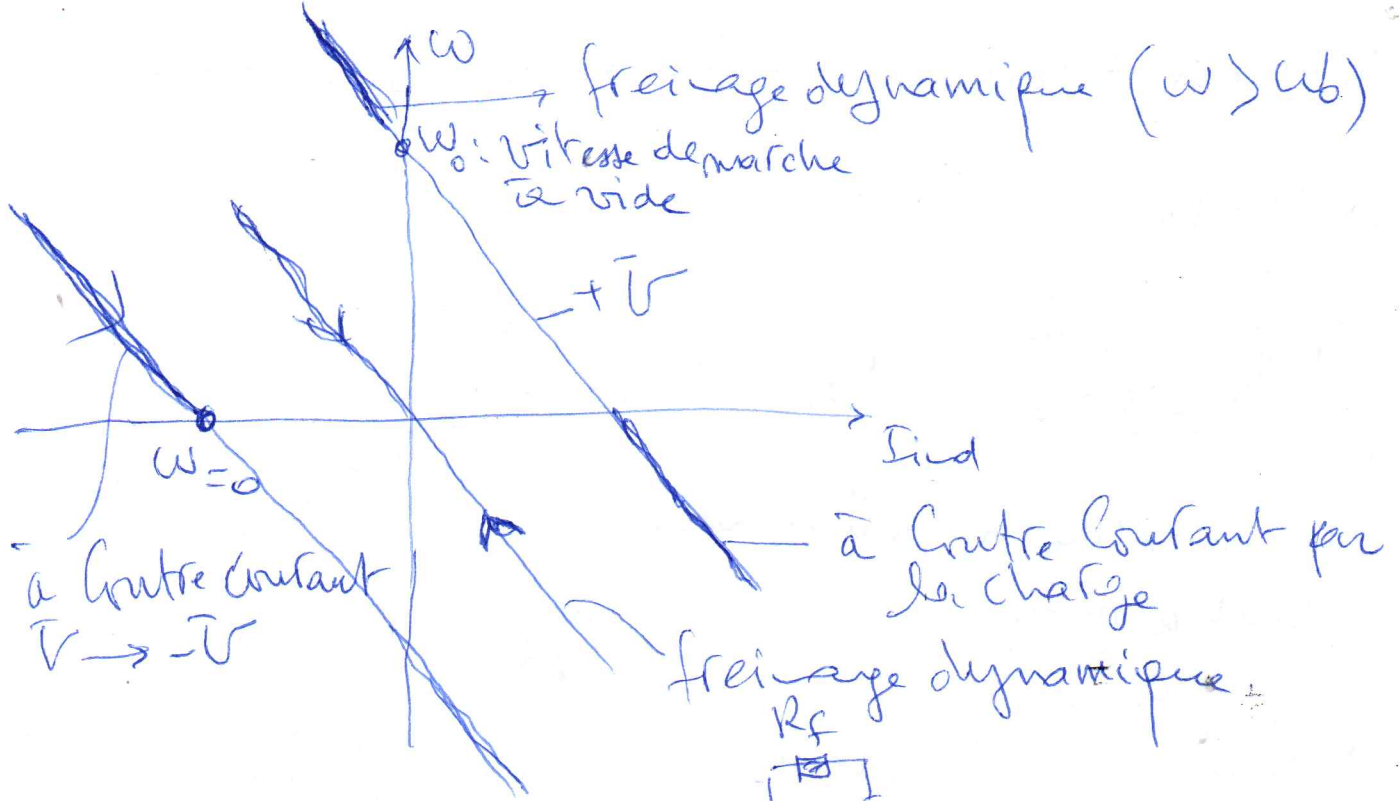 ω
freinage dynamique (ω > ω₀)
ω₀ : vitesse de marche
à vide
+ U
Iind
ω=0
à Contre Courant par
la charge
à Contre courant
U → -U
freinage dynamique
Rf